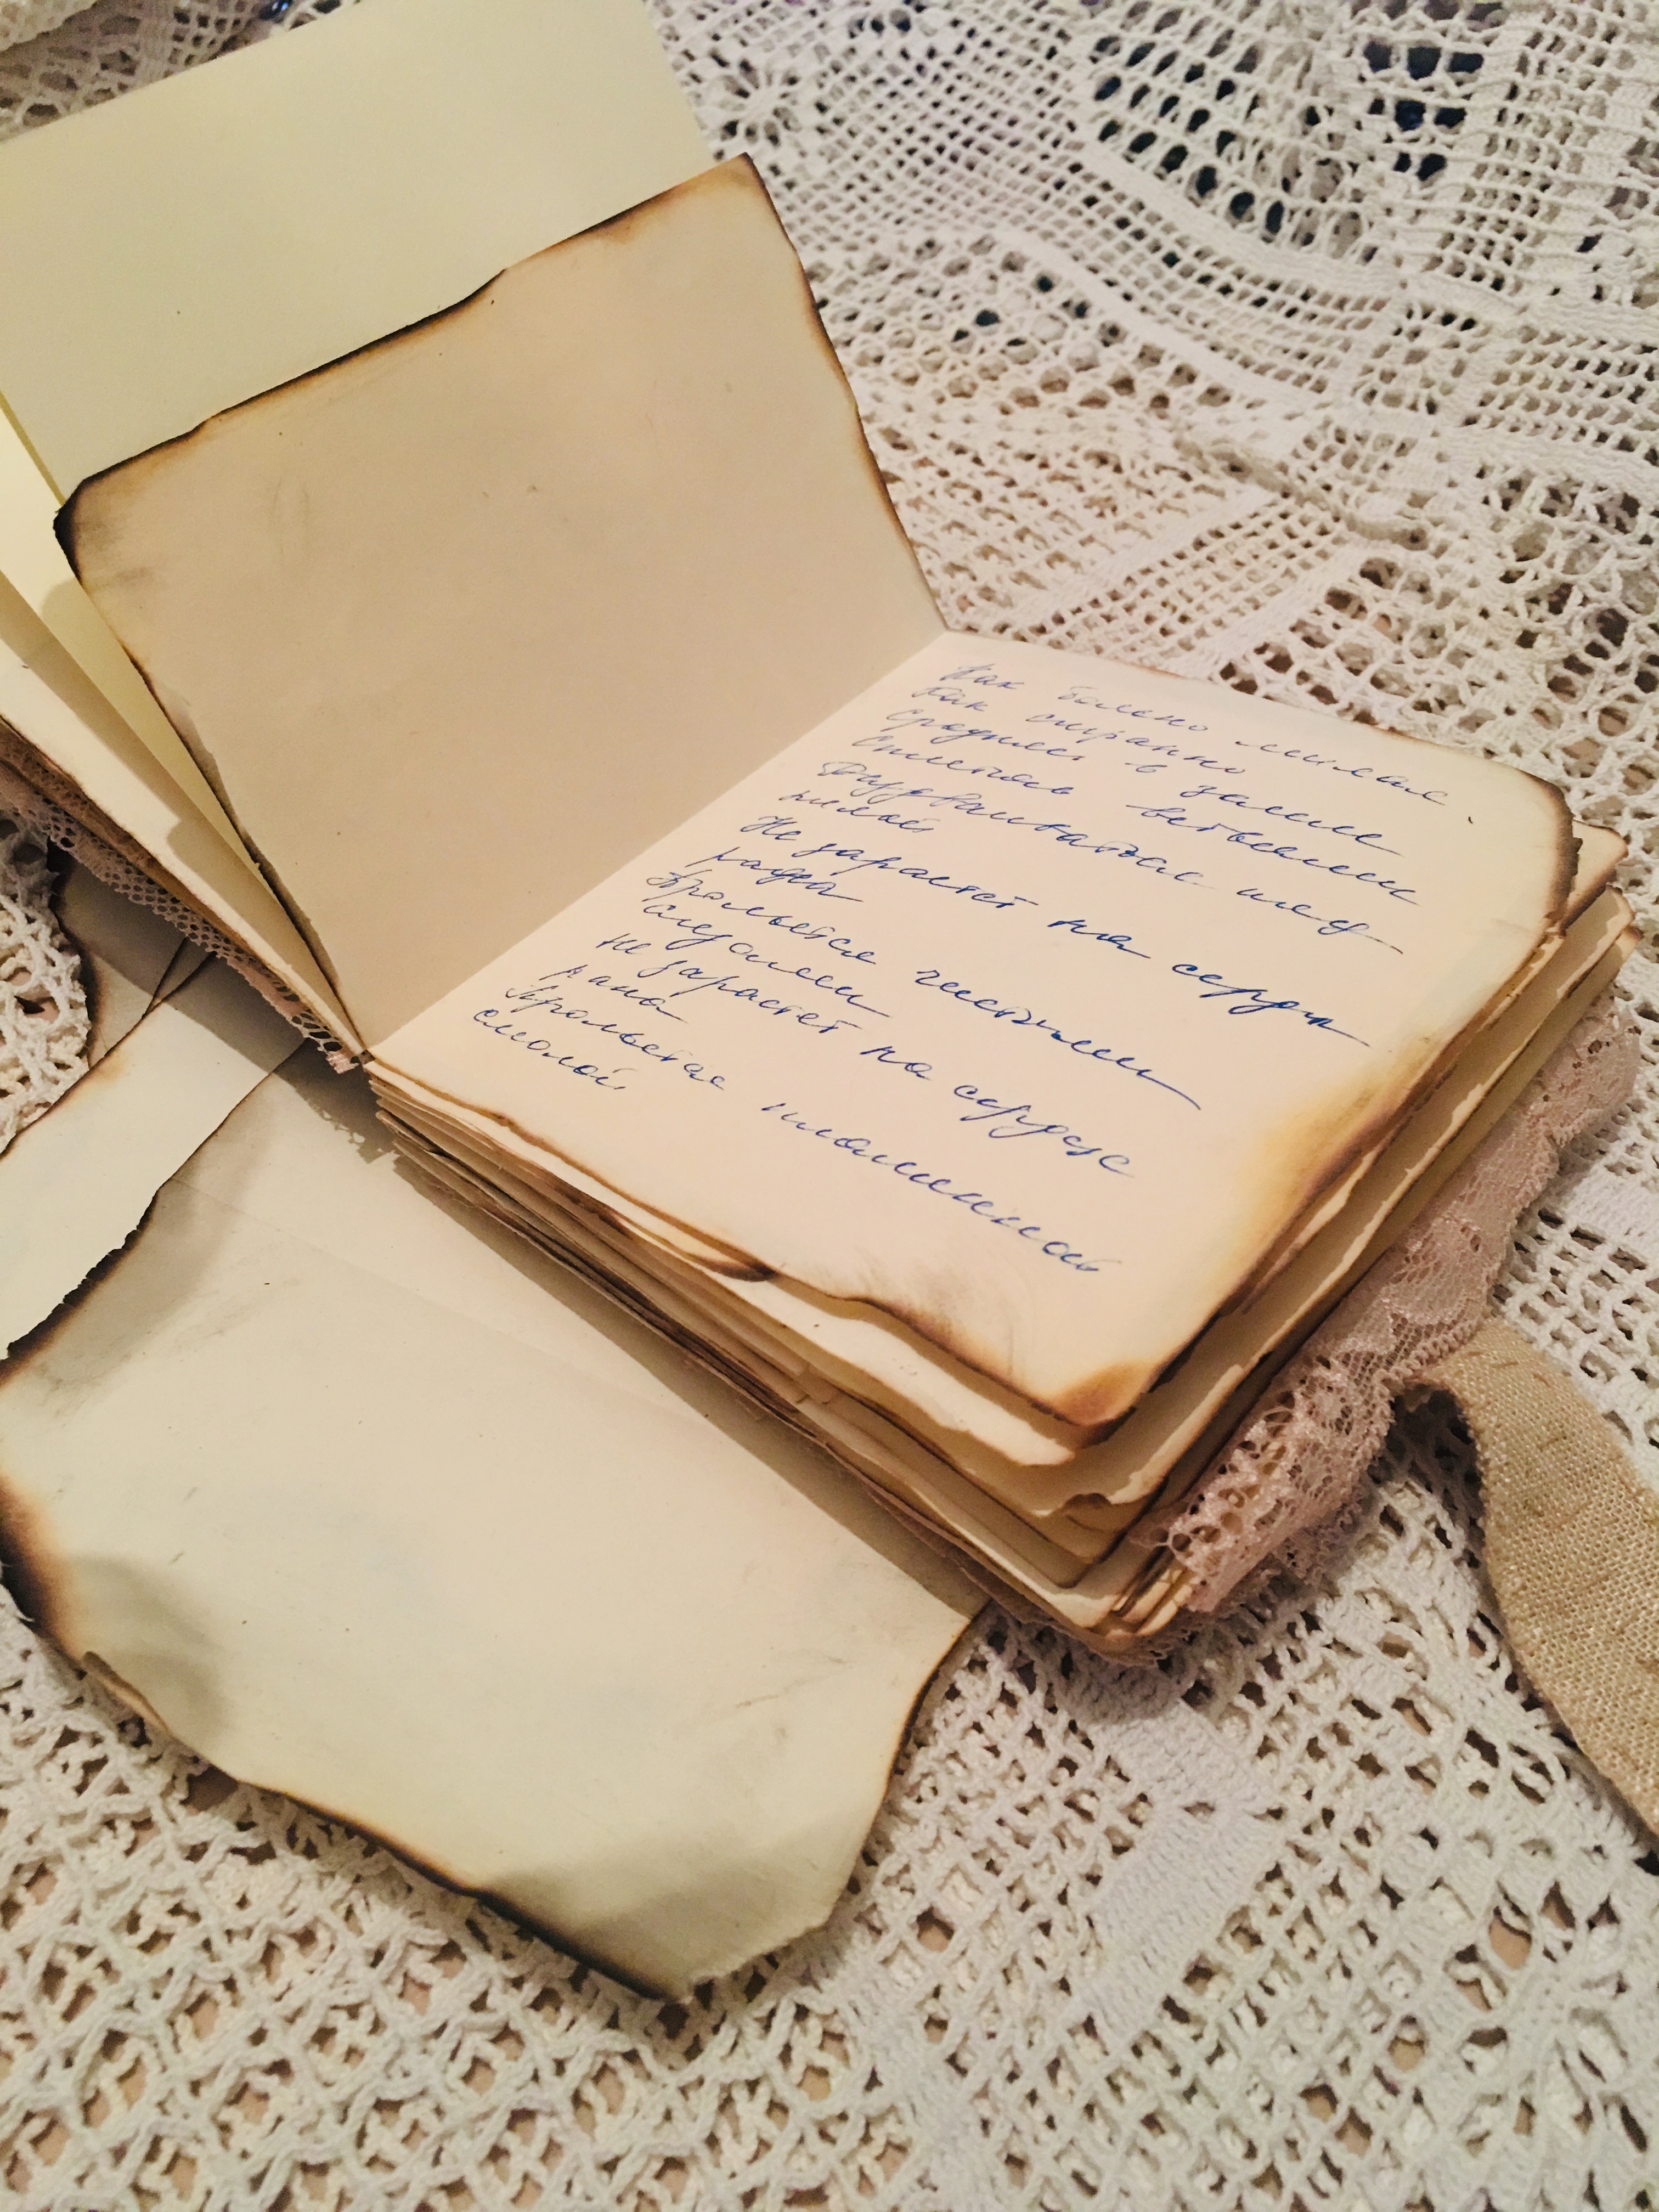 Как больно милая
Как странно
Сроднясь в земле
Сплетясь ветвями
Раздваиваться под
пилой
Не зарастет на сердце
рана
Прольется чистыми
слезами
Не зарастет на сердце
рана
Прольется пламенной
смолой.